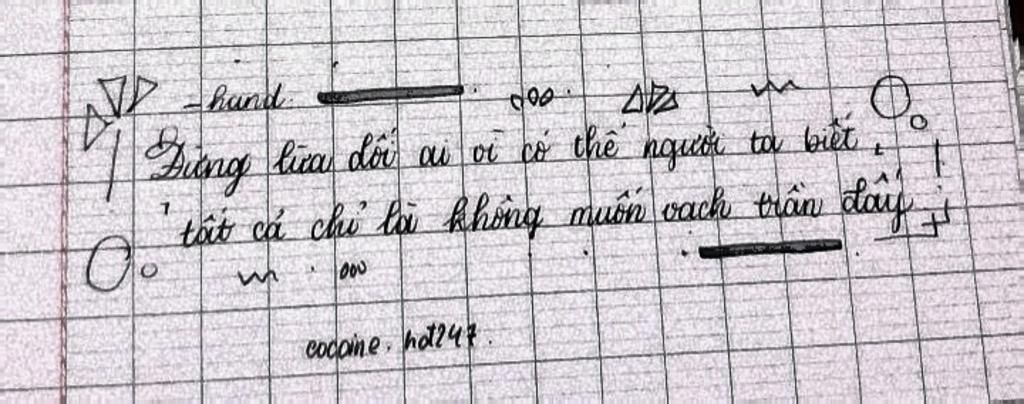 -hand.
Đừng lừa dối ai vì có thể người ta biết
tất cả chỉ là không muốn vạch trần đấy
cocaine.hot247.